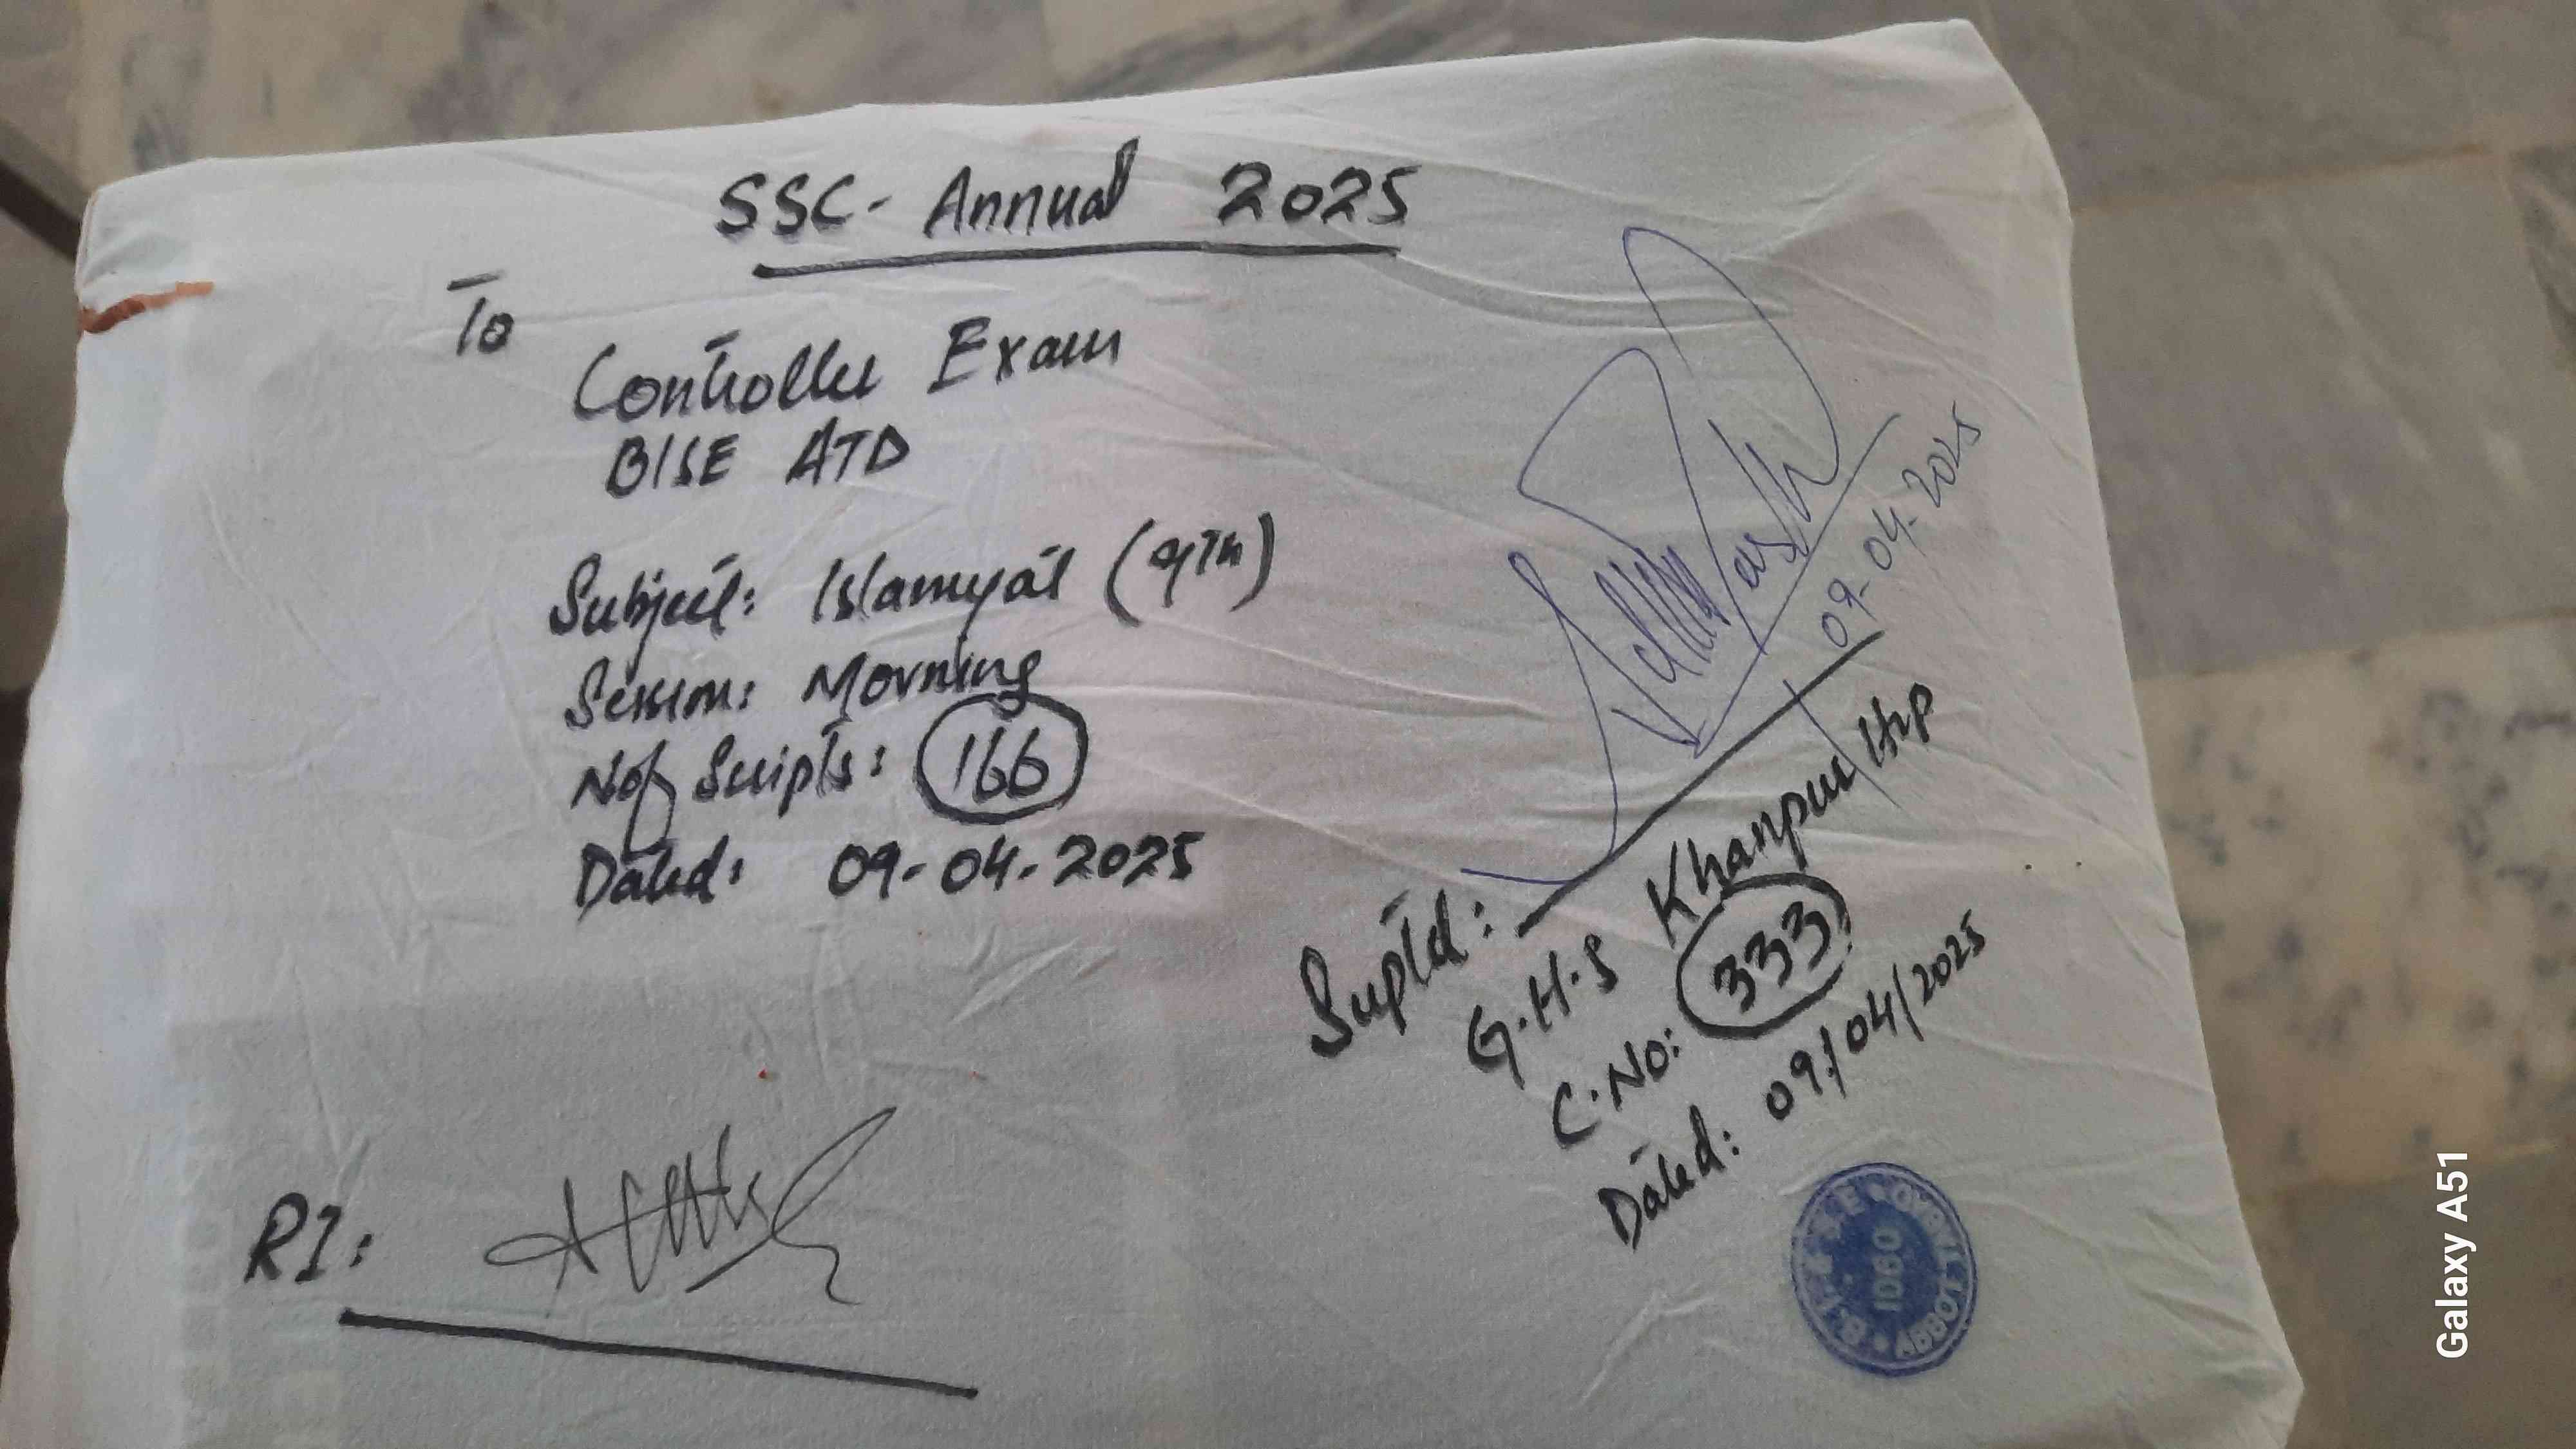 SSC- Annual 2025
To
Controller Exam
BISE ATD
Subject: Islamyat (9Th)
Session: Morning
Nof Scripts: 166
Dated: 09-04-2025
09-04-2025
Suptd:
G.H.S Khanpur Hrp
C.No: 333
Dated: 09/04/2025
RI:
B.I.& S.E ABBOTTABAD
1060
Galaxy A51